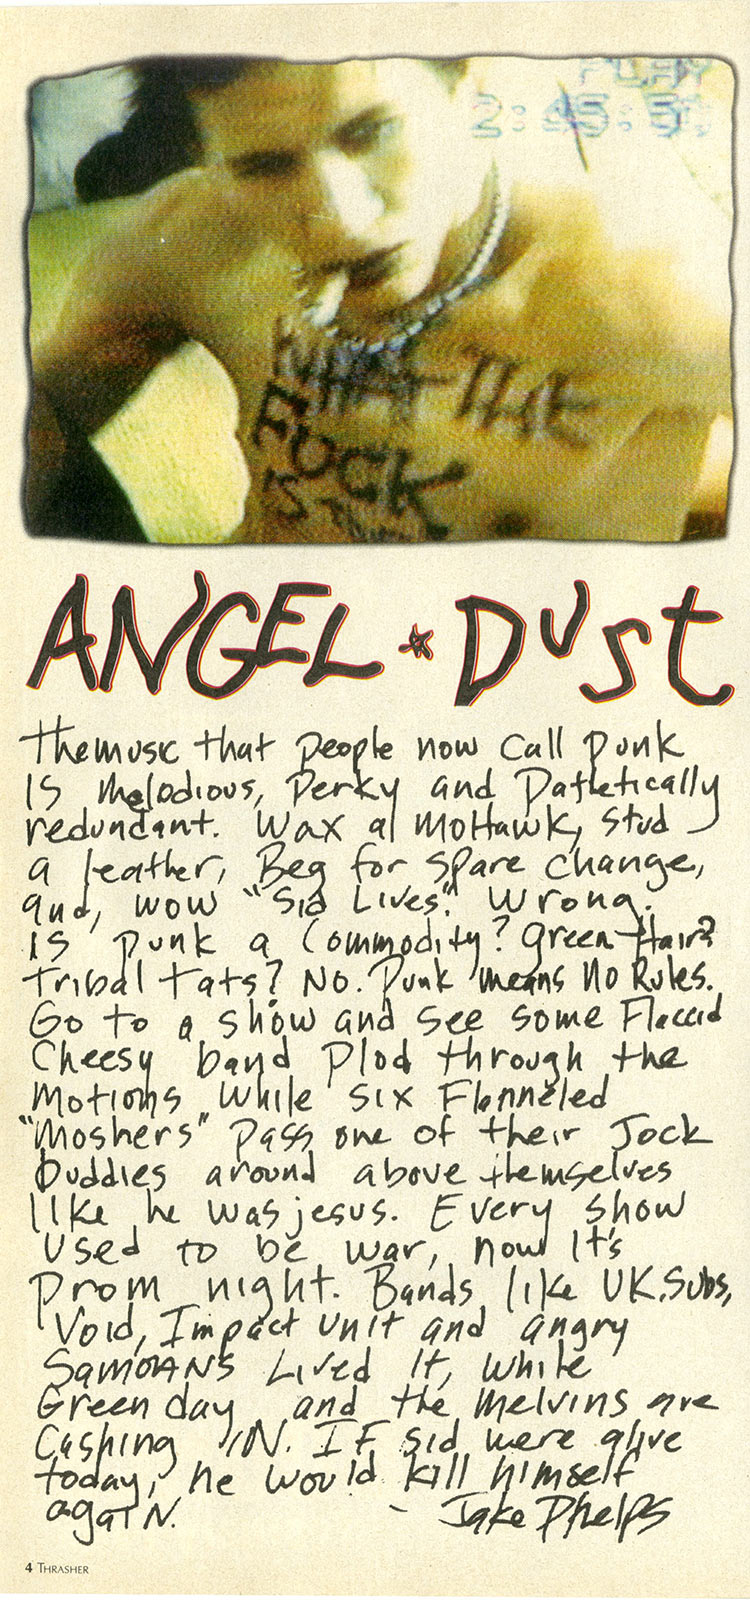 PLAY
2:45:5
WHAT THE
FUCK
IS
ANGEL * DUST
The music that people now call punk
IS melodious, perky and Pathetically
redundant. Wax a MOHAWK, stud
a leather, Beg for spare change,
and, wow "Sid Lives". Wrong.
IS punk a Commodity? Green Hair?
Tribal tats? No. Punk means No Rules.
Go to a show and see some Flaccid
Cheesy band Plod through the
Motions while six Flanneled
"Moshers" Pass one of their Jock
buddies around above themselves
like he was jesus. Every show
Used to be war, now It's
prom night. Bands like UK.Subs,
Void, Impact Unit and angry
SamOANS Lived It, while
Green day and the Melvins are
Cashing IN. IF sid were alive
today, he would kill himself
again. - Jake Phelps
4 THRASHER